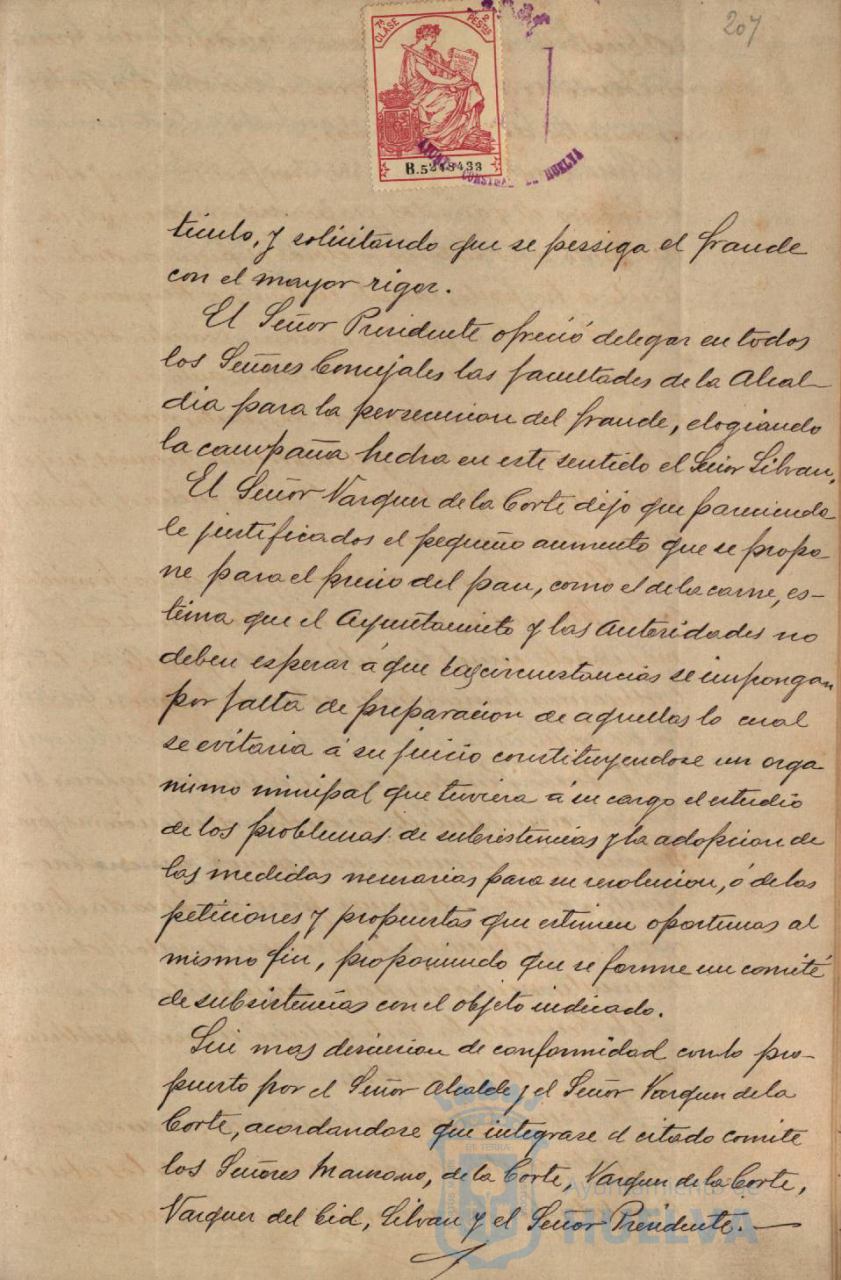 207
7ª CLASE
2 PESTAS
B.5248433
AYUNTº CONSTNAL DE HUELVA
ticulo, y solicitando que se persiga el fraude
con el mayor rigor.
El Señor Presidente ofreció delegar en todos
los Señores Concejales las facultades de la Alcal-
dia para la persecucion del fraude, elogiando
la campaña hecha en este sentido el Señor Silvan,
El Señor Vazquez de la Corte dijo que pareciendo
le justificados el pequeño aumento que se propo-
ne para el precio del pan, como el de la carne, es-
tima que el Ayuntamiento y las Autoridades no
deben esperar á que las circunstancias se impongan
por falta de preparacion de aquellas lo cual
se evitaria á su juicio constituyendose un orga
nismo minipal que tuviera á su cargo el estudio
de los problemas de subsistencias y la adopcion de
las medidas necesarias para su resolucion, ó de las
peticiones y propuestas que estimen oportunas al
mismo fin, proponiendo que se forme un comité
de subsistencias con el objeto indicado.
Sin mas discusion de conformidad con lo pro-
puesto por el Señor Alcalde y el Señor Vazquez de la
Corte, acordandose que integrase el citado comite
los Señores Manzano, de la Corte, Vazquez de la Corte,
Vazquez del Cid, Silvan y el Señor Presidente.—
Ayuntamiento de
HUELVA